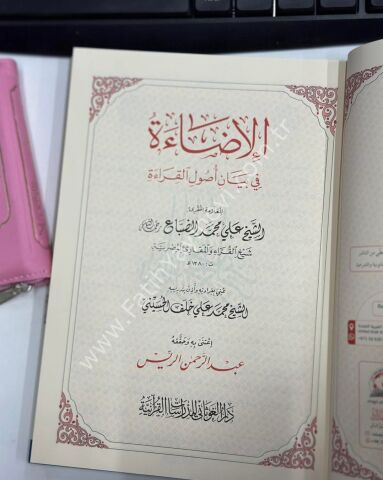 الإضاءة
في بيان أصول القراءة
العلامة المقرئ
الشيخ علي محمد الضباع
شيخ القراء والمقارئ المصرية
ت: ١٣٨٠هـ
الشيخ محمد علي خلف الحسيني
اعتنى به وحققه
عبد الرحمن الريس
دار الغوثاني للدراسات القرآنية
www.Fatihyayinevi.com.tr